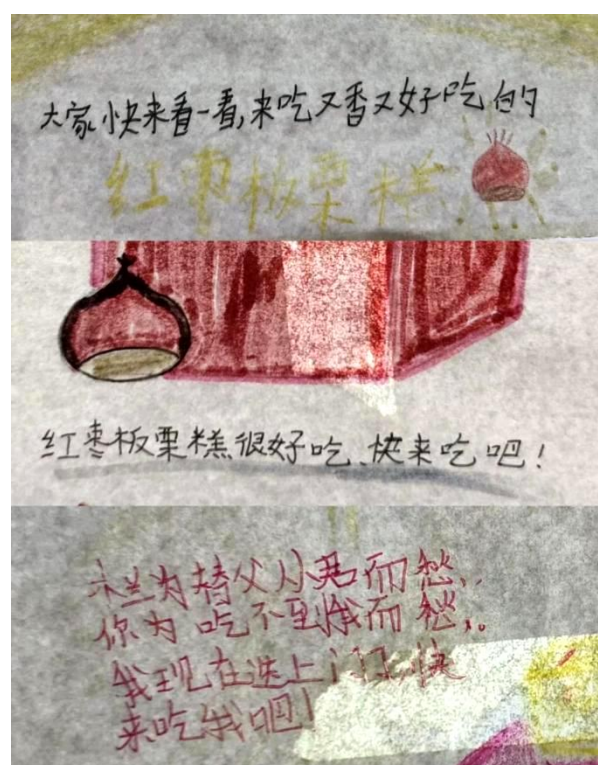 大家快来看一看,来吃又香又好吃的
红枣板栗糕
红枣板栗糕很好吃、快来吃吧!
木兰为替父从君而愁,,
你为吃不到我而愁,。
我现在送上门了,快
来吃我吧!